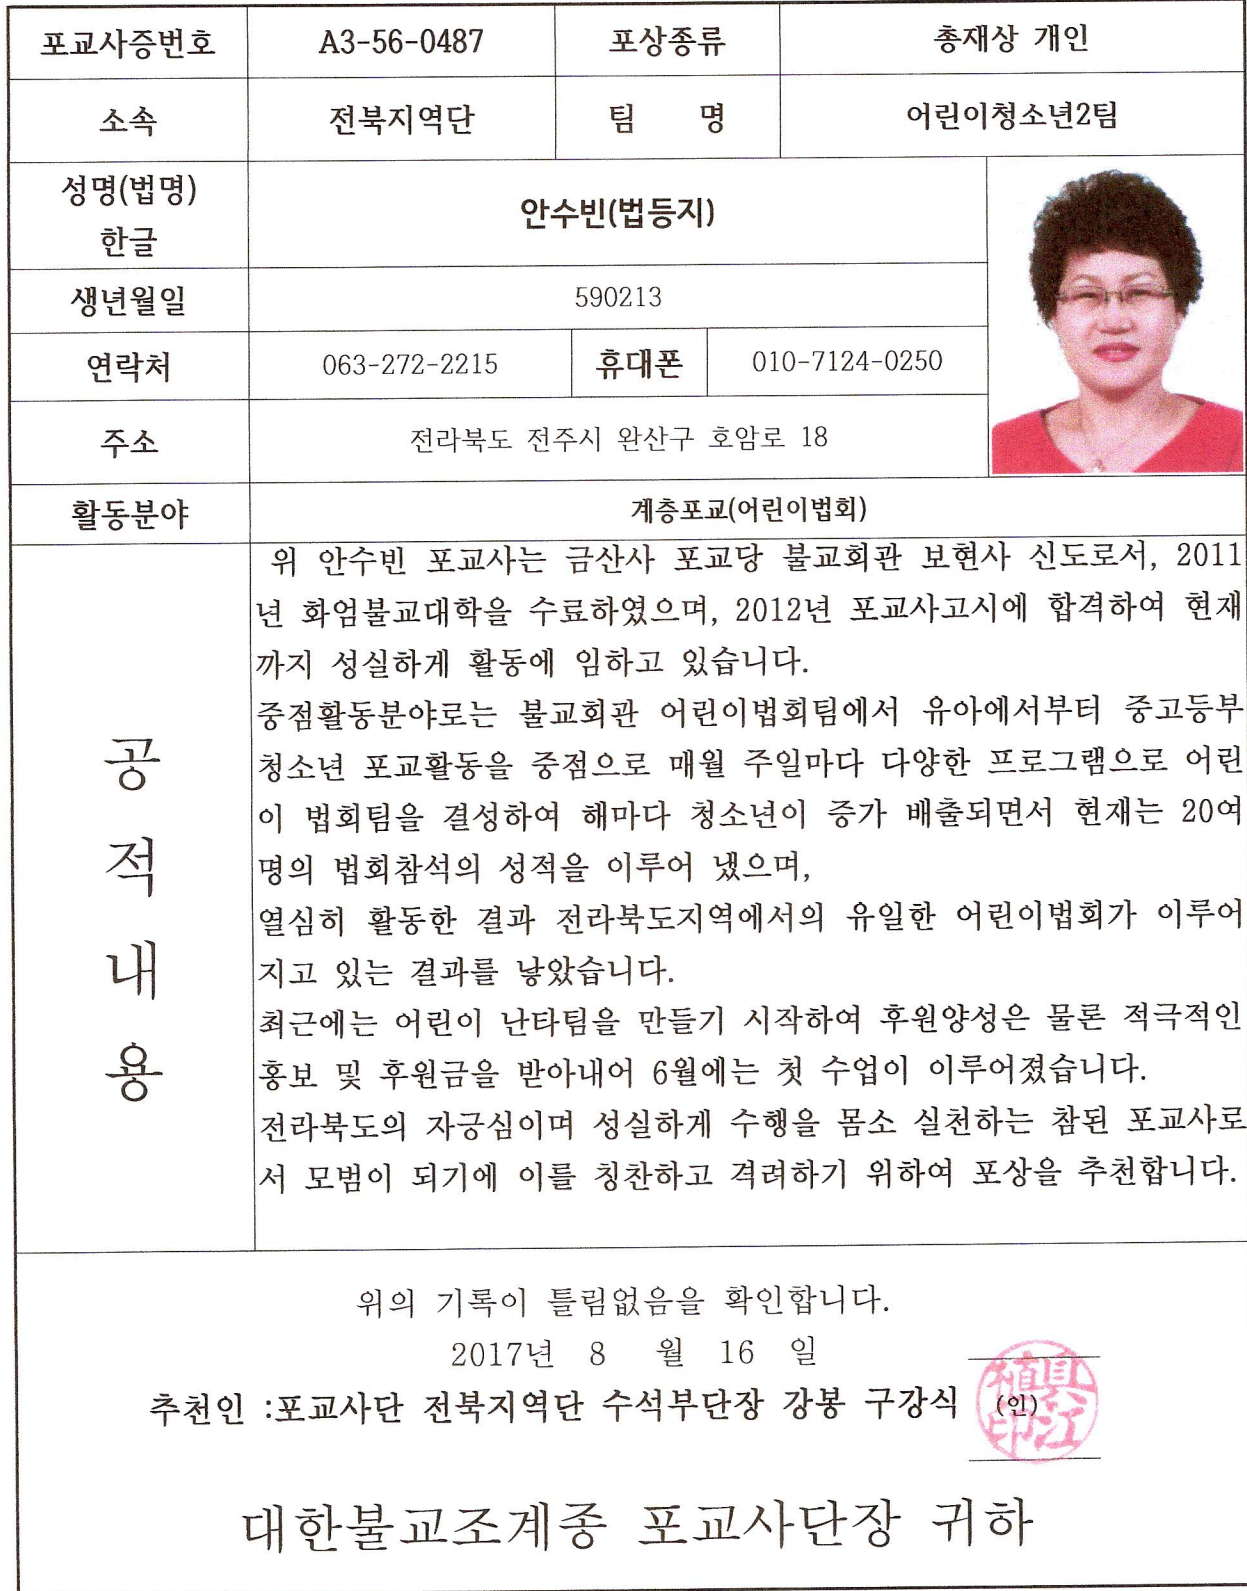 포교사증번호 A3-56-0487 포상종류 총재상 개인
소속 전북지역단 팀 명 어린이청소년2팀
성명(법명)
한글
안수빈(법등지)
생년월일 590213
연락처 063-272-2215 휴대폰 010-7124-0250
주소 전라북도 전주시 완산구 호암로 18
활동분야 계층포교(어린이법회)
공적내용
위 안수빈 포교사는 금산사 포교당 불교회관 보현사 신도로서, 2011
년 화엄불교대학을 수료하였으며, 2012년 포교사고시에 합격하여 현재
까지 성실하게 활동에 임하고 있습니다.
중점활동분야로는 불교회관 어린이법회팀에서 유아에서부터 중고등부
청소년 포교활동을 중점으로 매월 주일마다 다양한 프로그램으로 어린
이 법회팀을 결성하여 해마다 청소년이 증가 배출되면서 현재는 20여
명의 법회참석의 성적을 이루어 냈으며,
열심히 활동한 결과 전라북도지역에서의 유일한 어린이법회가 이루어
지고 있는 결과를 낳았습니다.
최근에는 어린이 난타팀을 만들기 시작하여 후원양성은 물론 적극적인
홍보 및 후원금을 받아내어 6월에는 첫 수업이 이루어졌습니다.
전라북도의 자긍심이며 성실하게 수행을 몸소 실천하는 참된 포교사로
서 모범이 되기에 이를 칭찬하고 격려하기 위하여 포상을 추천합니다.
위의 기록이 틀림없음을 확인합니다.
2017년 8 월 16 일
추천인 :포교사단 전북지역단 수석부단장 강봉 구강식 (인)
대한불교조계종 포교사단장 귀하